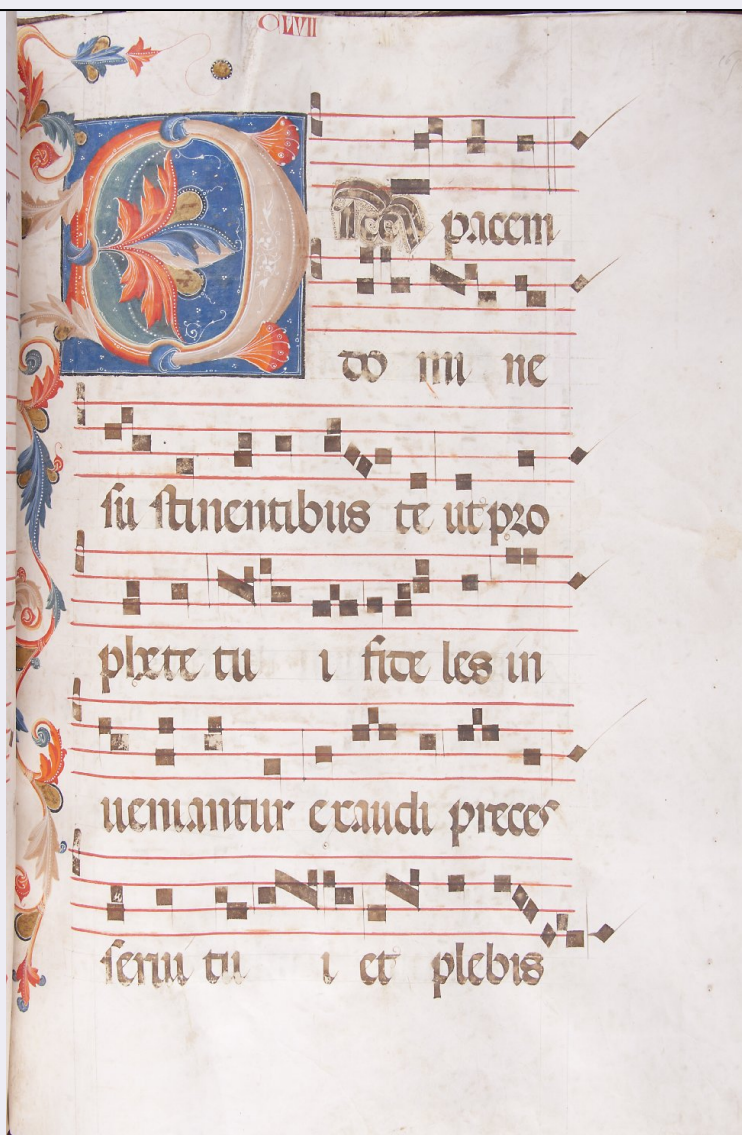 CLVII
pacem
do mi ne
su stinentibus te ut pro
phete tu i fide les in
ueniantur exaudi preces
serui tu i et plebis